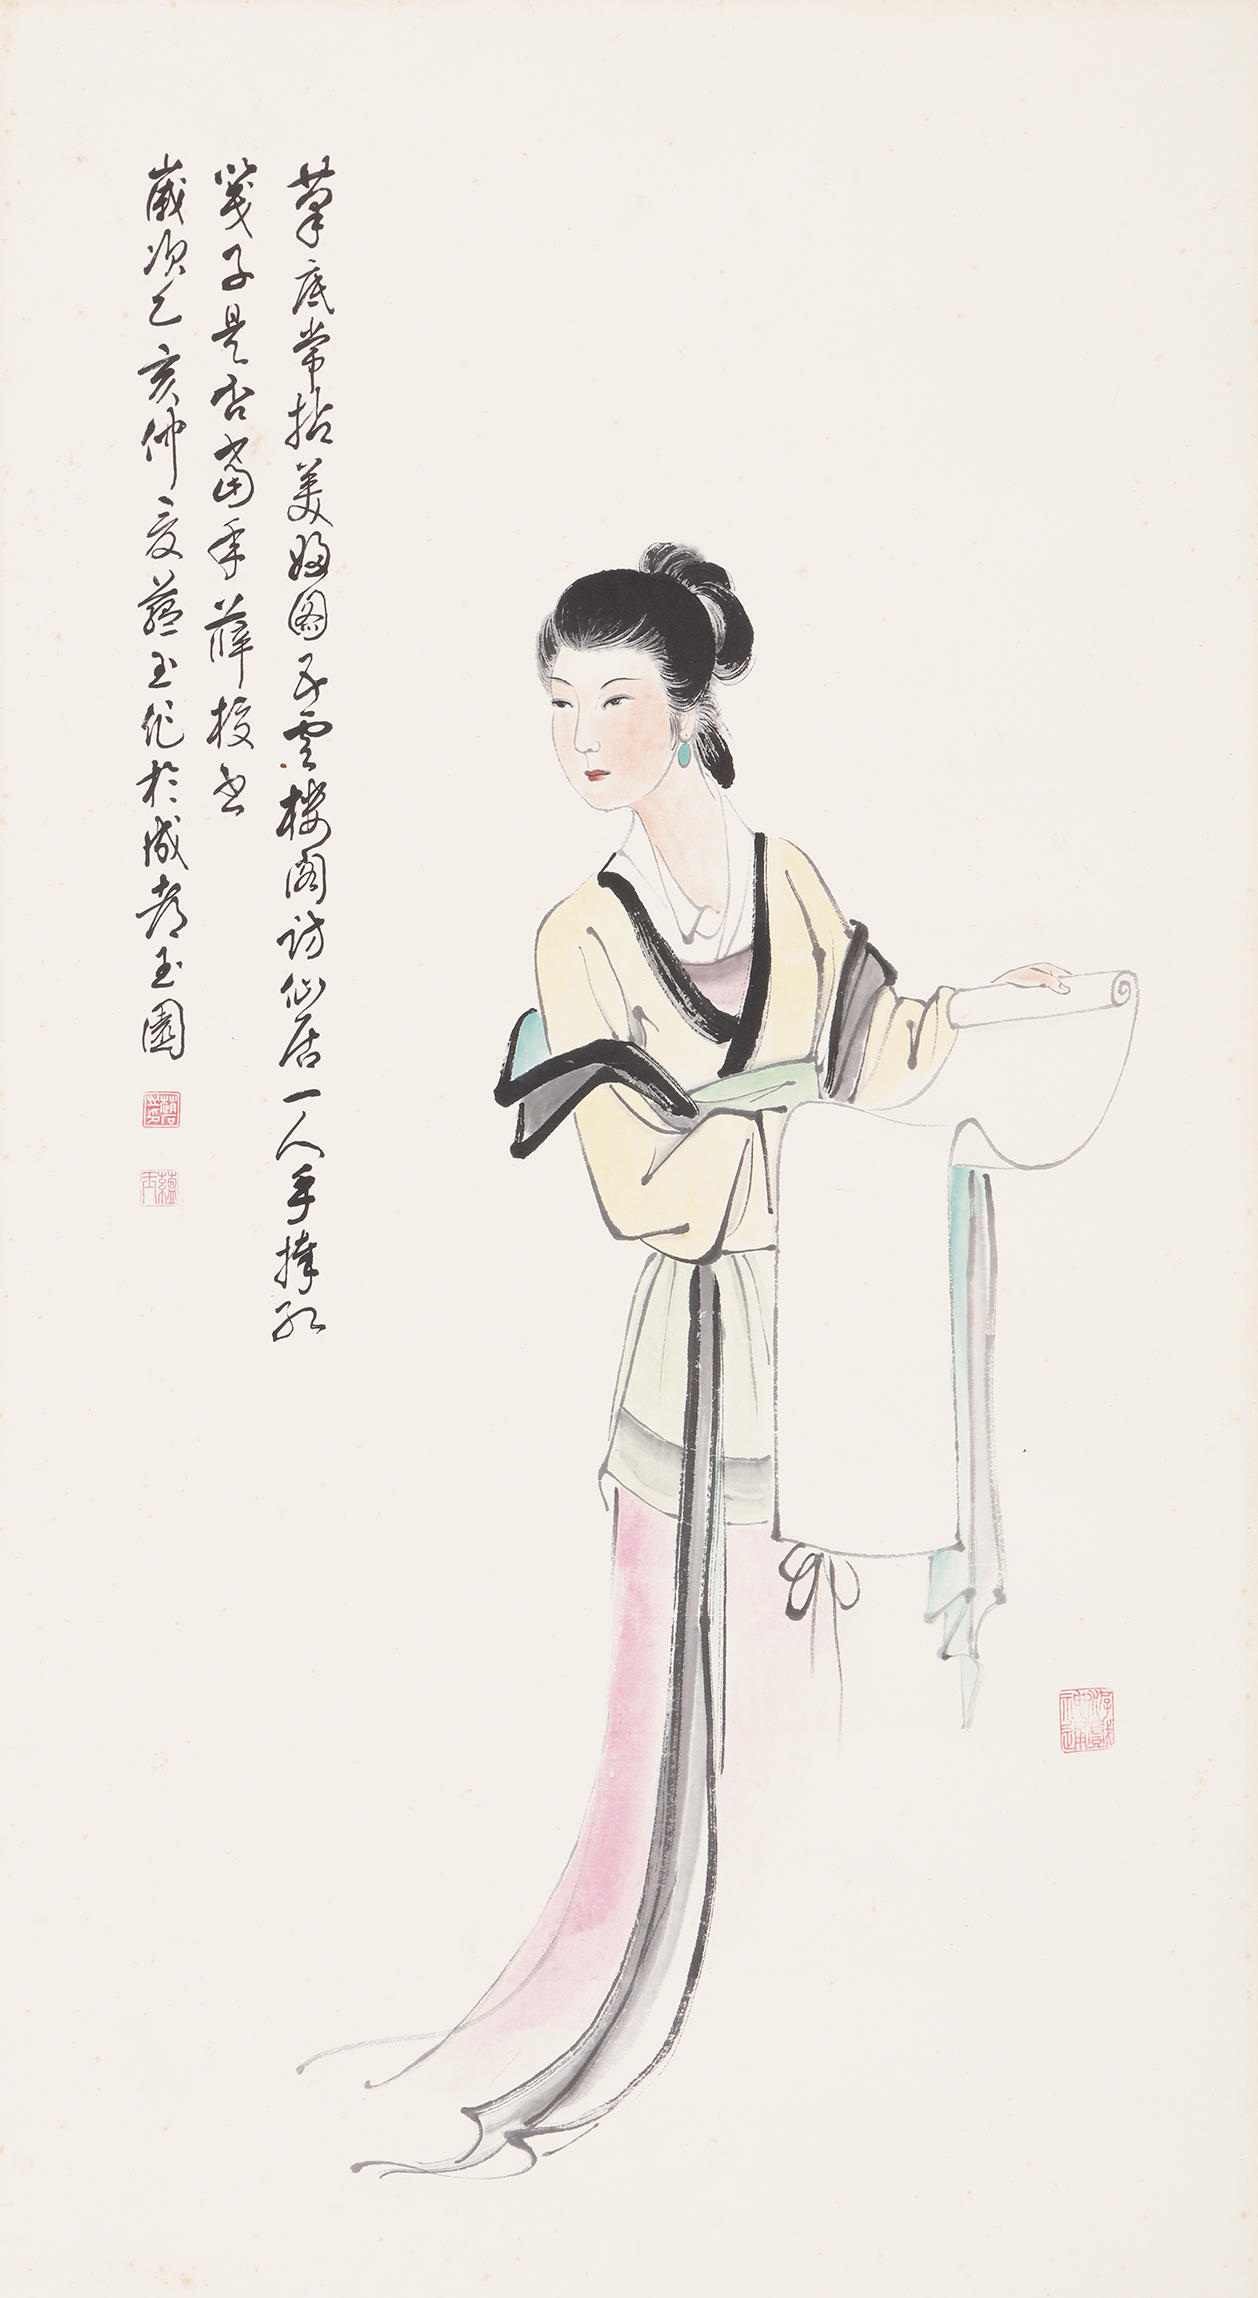 筆底常拈美婦圖五雲樓閣訪仙居一人手捧紅
箋子是否當年薛校書
歲次乙亥仲夏蘊玉作於成都玉園